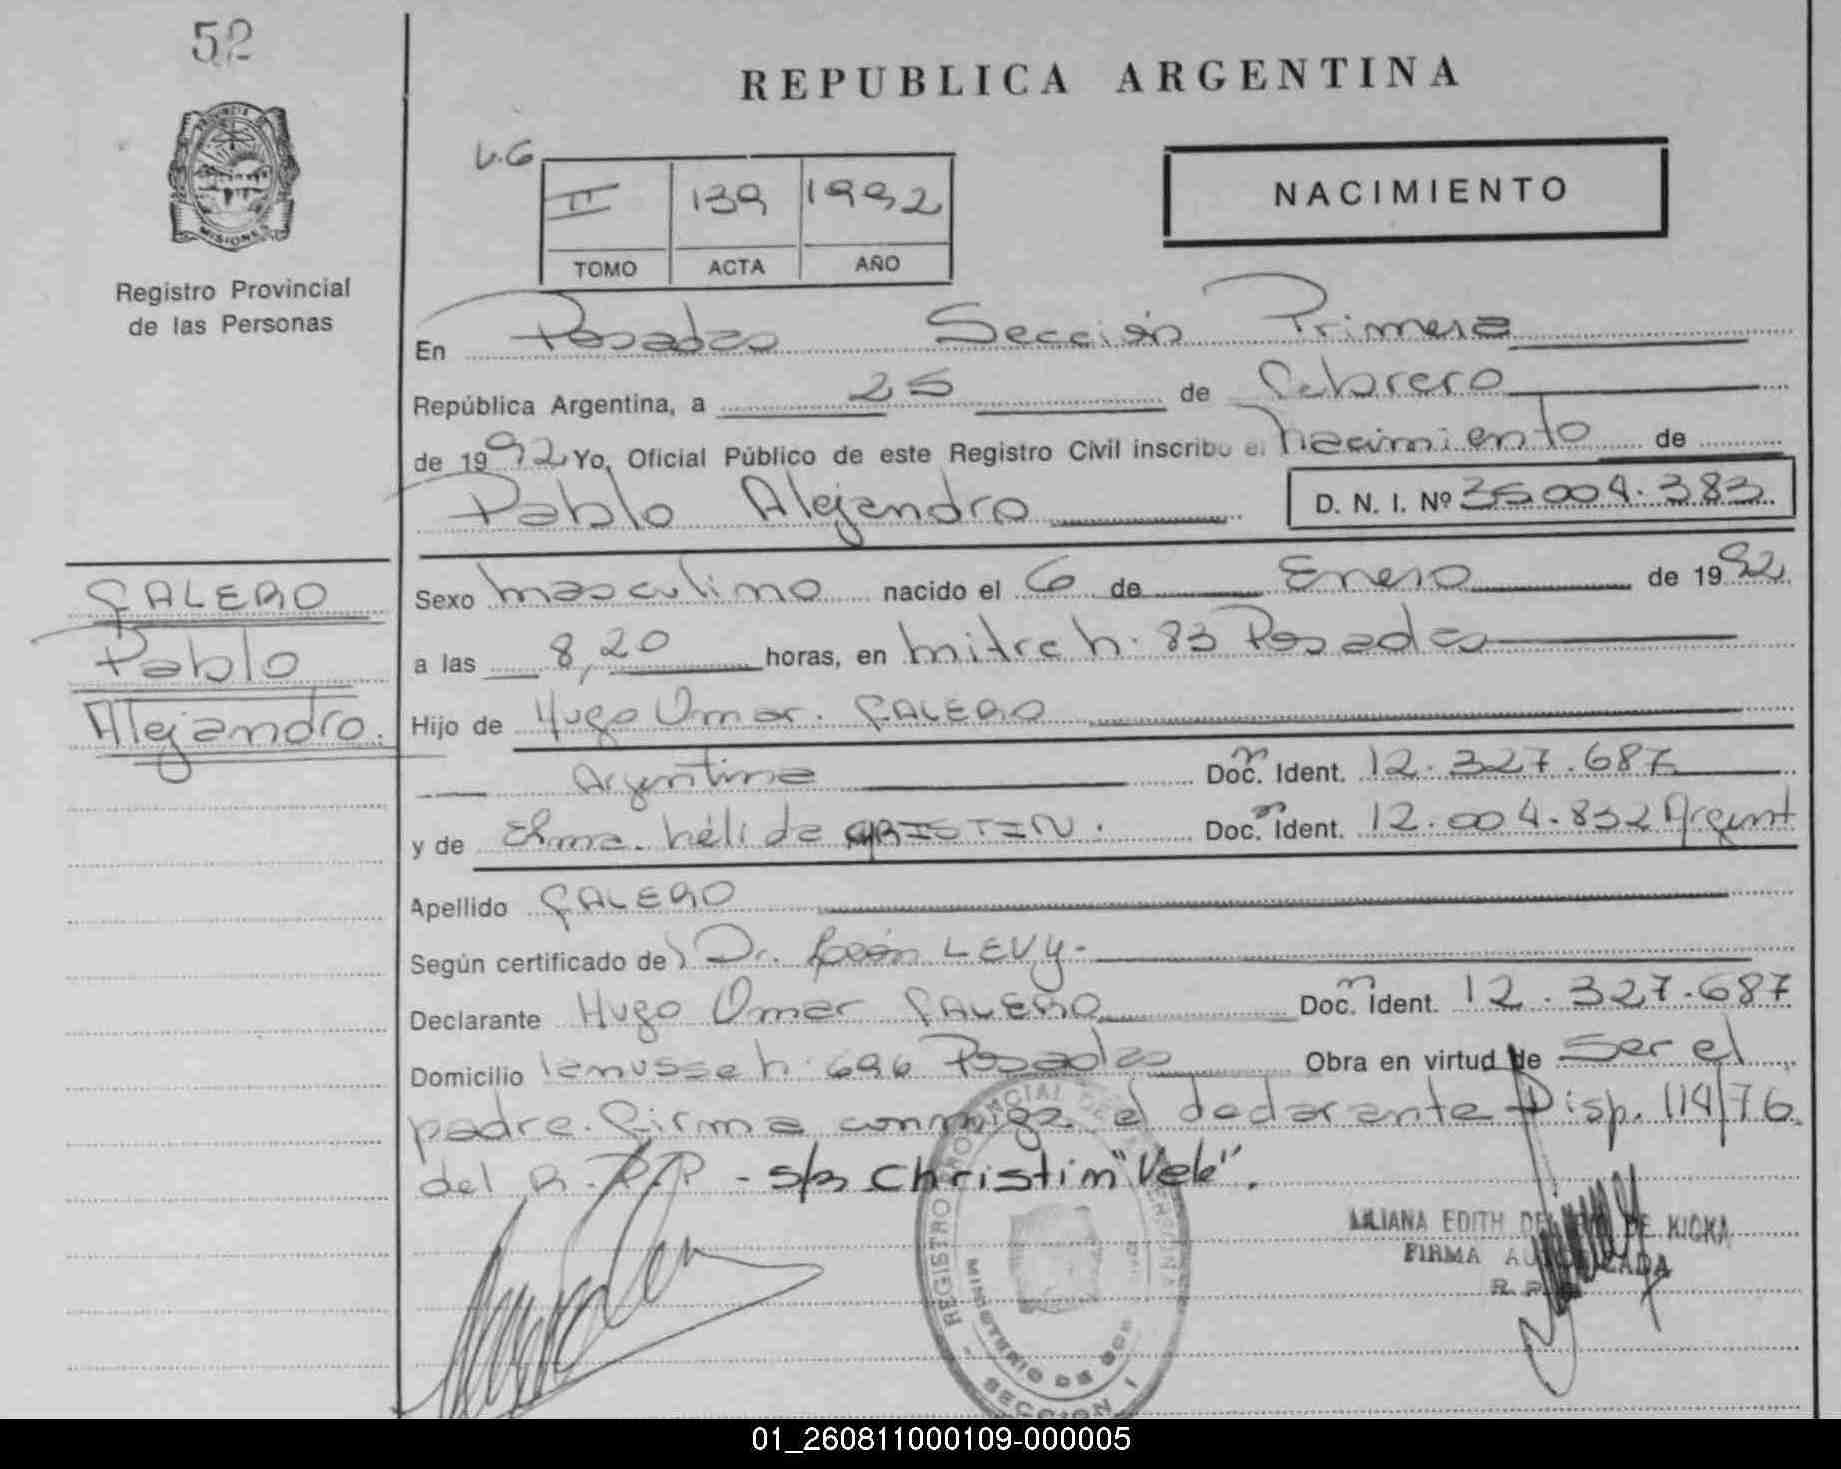 52
REPUBLICA ARGENTINA
PROVINCIA DE
MISIONES
Registro Provincial
de las Personas
V.G
II 139 1992
TOMO ACTA AÑO
NACIMIENTO
En Posadas Sección Primera
República Argentina, a 25 de febrero
de 1992 Yo, Oficial Público de este Registro Civil inscribo el nacimiento de
Pablo Alejandro D. N. I. Nº 35004.383
GALERO
Pablo
Alejandro.
Sexo masculino nacido el 6 de Enero de 1992
a las 8,20 horas, en mitre n. 83 Posadas
Hijo de Hugo Omar. GALERO
Argentina Doc. Ident. 12.327.687
y de nélida Doc. Ident. 12.004.832 Argent
Apellido GALERO
Según certificado de Dr. León LEVY-
Declarante Hugo Omar GALERO Doc. Ident. 12.327.687
Domicilio lanusse n. 696 Posadas Obra en virtud de Ser el
padre. firma conmigo el declarante Disp. 114/76
del R.P.P - s/b Christin "Vale".
REGISTRO PROVINCIAL DE LAS PERSONAS
MINISTERIO DE
SECCION 1
LILIANA EDITH DE KICKA
FIRMA AUTORIZADA
R. P.
01_260811000109-000005